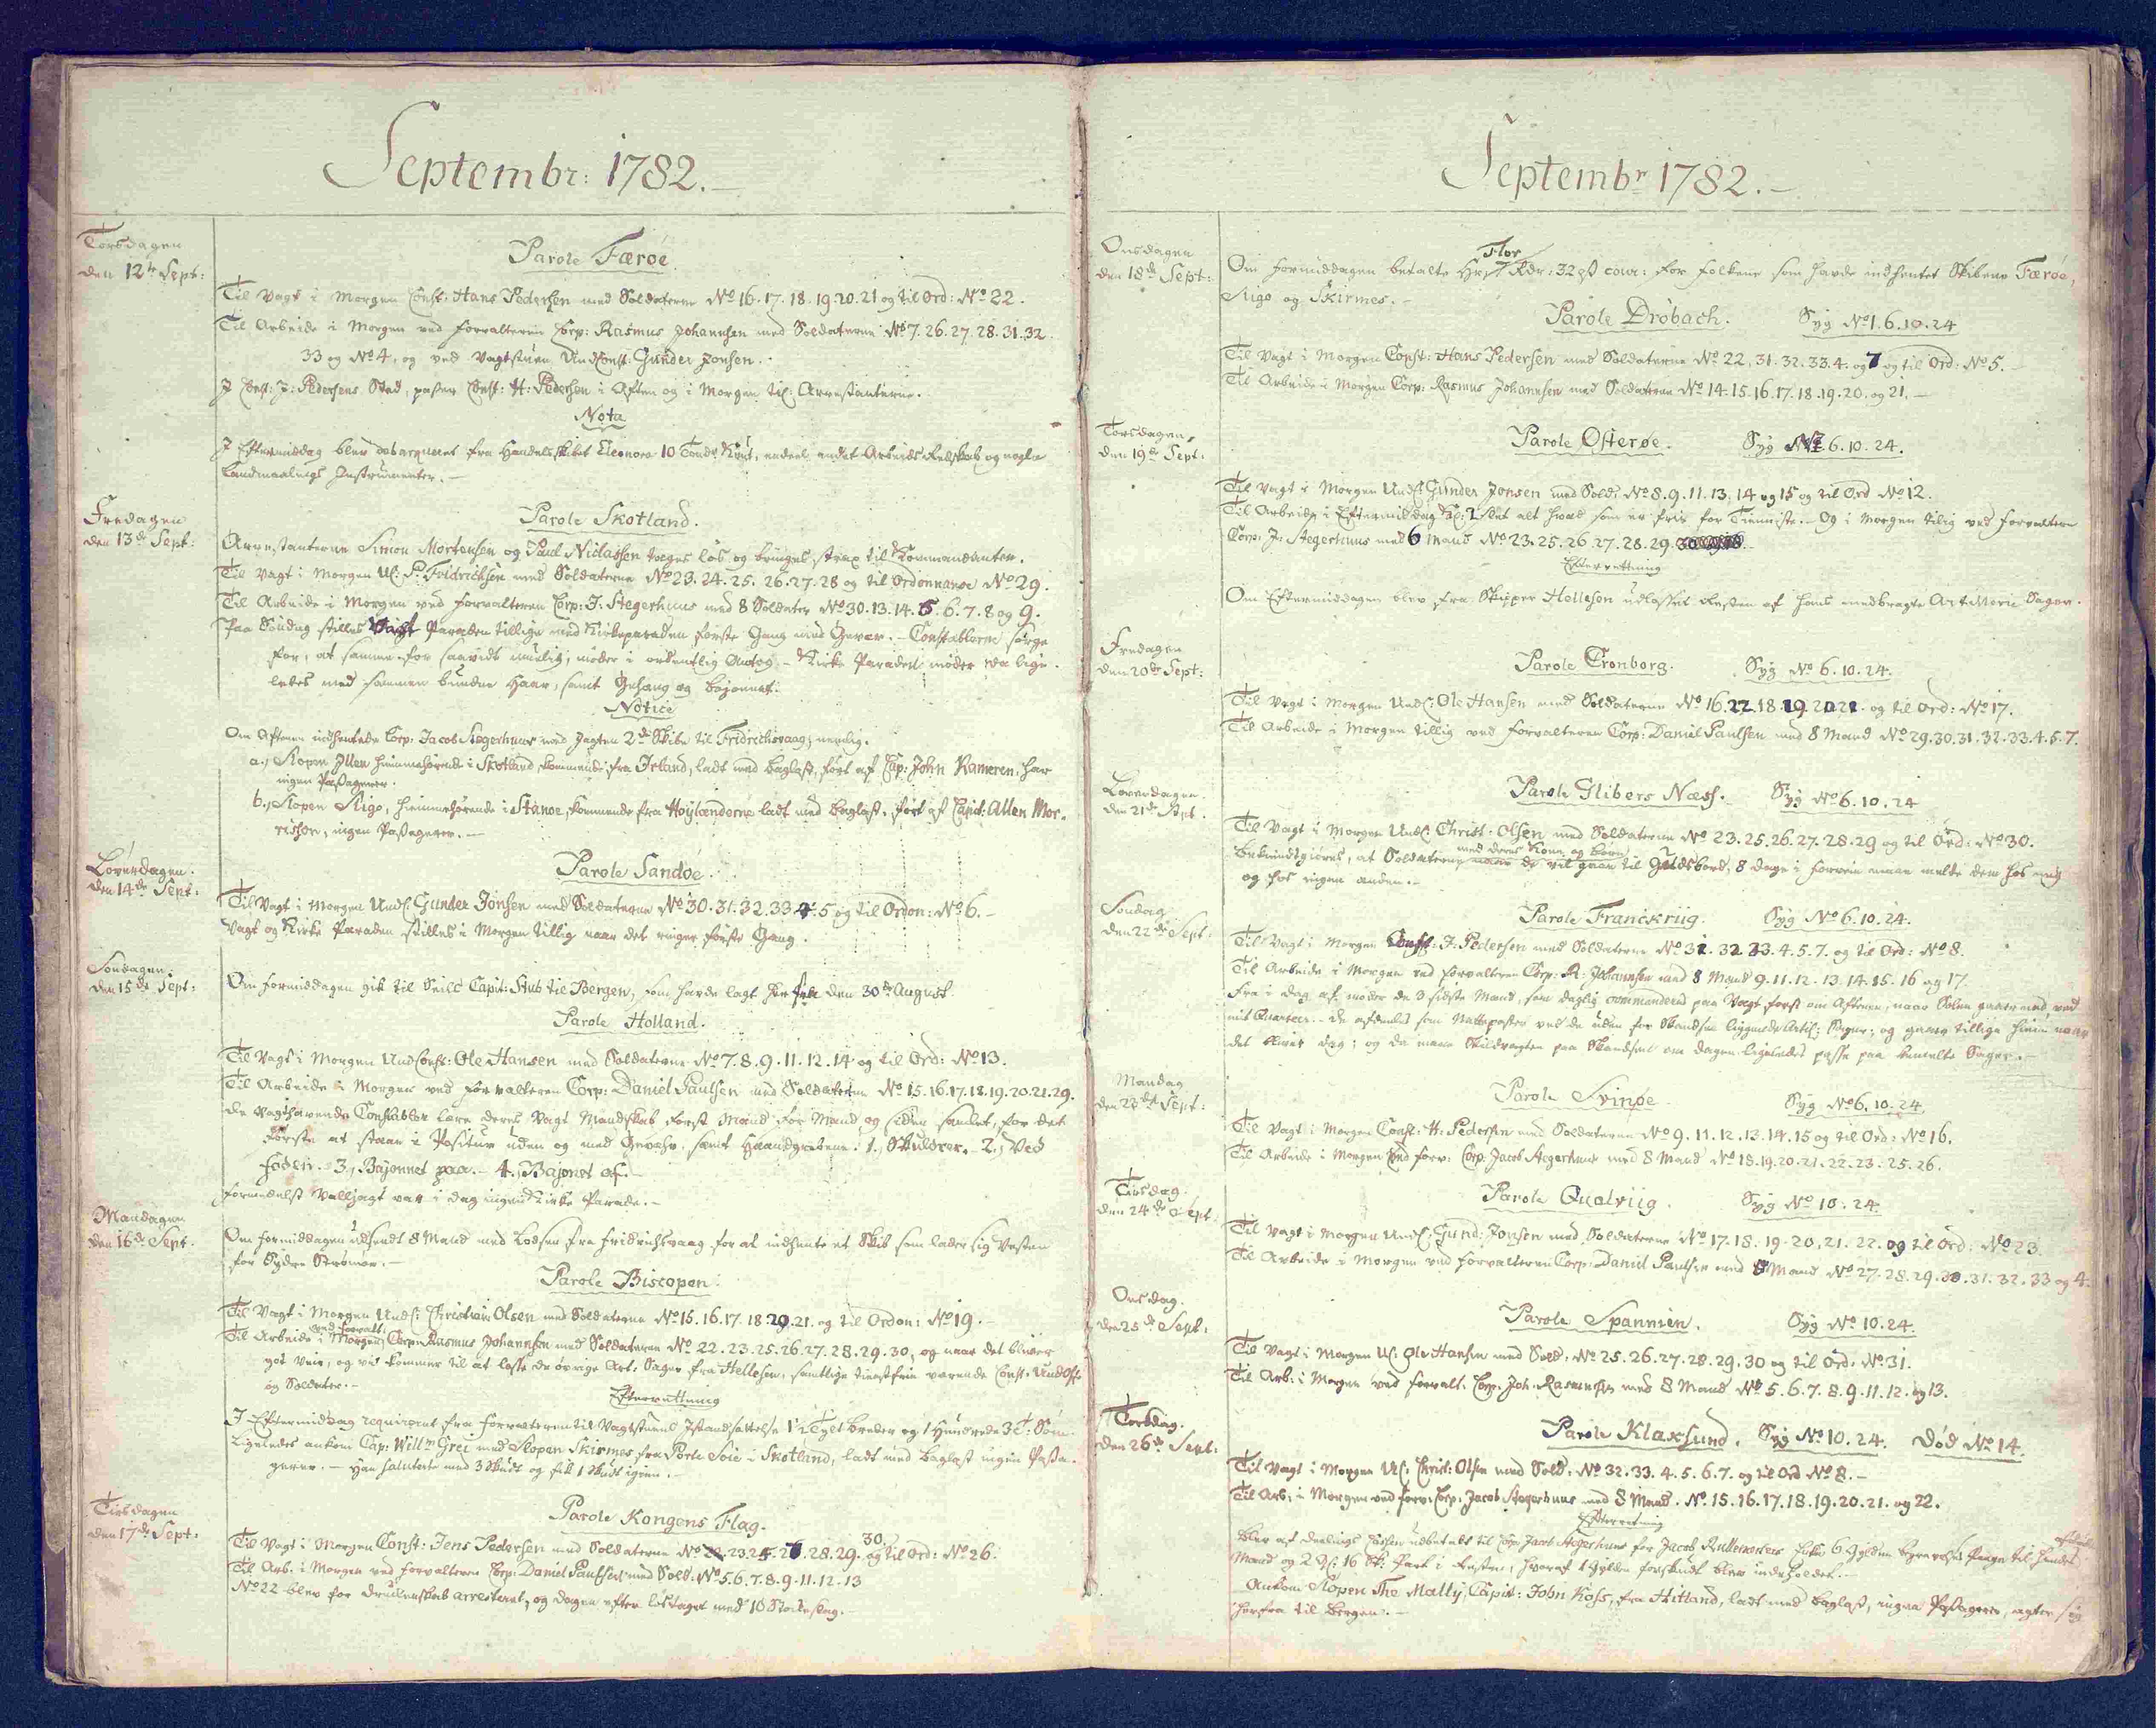 Septembr: 1782.
Torsdagen
den 12te Sept:
Parole Færöe.
Til Vagt i Morgen Const: Hans Pedersen med Soldaterne No 16. 17. 18. 19. 20. 21 og til Ord: No 22.
Til Arbeide i Morgen ved Forvalteren Corp: Rasmus Johannsen med Soldaterne No 7. 26. 27. 28. 31. 32.
33 og No 4, og ved Vagtstuen UndConst: Gunder Jonsen.
I Const: J: Pedersens Sted, passer Const: H: Pedersen i Aften og i Morgen til Arrestanterne.
Nota
I Eftermiddag blev debarqueret fra Handelsskibet Eleonora 10 Tønder Krut, endeel andet Arbeids Redskab og nogle
Landmaalings Instrumenter.
Fredagen
den 13de Sept:
Parole Skotland.
Arrestanterne Simon Mortensen og Paul Niclassen tages løs og bringes strax til Kommandanten.
Til Vagt i Morgen UC: P: Foldrichsen med Soldaterne No 23. 24. 25. 26. 27. 28 og til Ordonnance No 29.
Til Arbeide i Morgen ved Forvalteren Corp: J: Stegerhuus med 8 Soldater No 30. 13. 14. 5. 6. 7. 8 og 9.
Paa Søndag stilles Vagt Paraden tillige med Kirkeparaden første Gang med Gevær. - Constablerne sørge
for, at samme for saavidt muelig, møder i ordentlig Antog. - Kirke Paraden møder da lige-
ledes med sammen bunden Haar, samt Gehæng og Bajonnet.
Notice
Om Aftenen indhentede Corp: Jacob Stegerhuus med Jagten 2de Skibe til Fridrichsvaag; nemlig.
a., Slopen Ellen hiemmehørende i Skotland, kommende fra Irland, ladt med Baglast, ført af Cap: John Kameren, har
ingen Passagerer.
b., Slopen Nigo, hiemmehørende i Stanoe, kommende fra Höylanderne ladt med Baglast, ført af Capit: Allen Mor-
rishon, ingen Passagerer.
Løverdagen.
den 14de Sept:
Parole Sandöe.
Til Vagt i Morgen UndC: Gunder Jönsen med Soldaterne No 30. 31. 32. 33. 4. 5 og til Ordon: No 6.
Vagt og Kirke Paraden stilles i Morgen tillig naar det ringer første Gang.
Søndagen
den 15de Sept:
Om Formiddagen gik til Seils Capit: Stub til Bergen, som havde lagt her siden den 30te August.
Parole Holland.
Til Vagt i Morgen UndConst: Ole Hansen med Soldaterne No 7. 8. 9. 11. 12. 14 og til Ord: No 13.
Til Arbeide i Morgen ved Forvalteren Corp: Daniel Paulsen med Soldaterne No 15. 16. 17. 18. 19. 20. 21. 29.
De Vagthavende Constabler lære deres Vagt Mandskab først Mand for Mand og siden samlet, for det
første at staae i Positur uden og med Gevæhr, samt Haandgrebene: 1., Skuldrer. - 2., Ved
Foden. - 3., Bajonnet paa. - 4., Bajonet af.
Formedelst Valljagt var i Dag ingen Kirke Parade.
Mandagen
den 16de Sept.
Om Formiddagen udsendt 8 Mand med Lodsen fra Fridrichsvaag for at indhente et Skib som lader sig Vesten
for Sydre Strømøe.
Parole Biscopen.
Til Vagt i Morgen UndC: Christian Olsen med Soldaterne No 15. 16. 17. 18. 20. 21. og til Ordon: No 19.
ved Forvalt:
Til Arbeide i Morgen Corp: Rasmus Johannsen med Soldaterne No 22. 23. 25. 26. 27. 28. 29. 30, og naar det bliver
got Veir, og vi kommer til at losse de øvrige Art: Sager fra Hellesen, samtlige tienestfrie værende Const: UndOff:
og Soldater.
Efterretning
I Eftermiddag requireret fra Forvalteren til Vagtstuens Istandsættelse 1 Bræder og 1 Hundrede 3 Søm.
Ligeledes ankom Cap: Willm Grei med Slopen Skirmes fra Porte Soie i Skotland, ladt med Baglast ingen Passa-
gerer. - Han saluterte med 3 Skudt og fik 1 Skudt igien.
Tirsdagen
den 17de Sept:
Parole Kongens Flag.
30.
Til Vagt i Morgen Const: Jens Pedersen med Soldaterne No 22. 23. 24. 25. 28. 29. og til Ord: No 26.
Til Arb. i Morgen ved Forvalteren Corp: Daniel Paulsen med Sold: No 5. 6. 7. 8. 9. 11. 12. 13
No 22 blev for Drukkenskab arresteret, og Dagen efter løstaget med 10 Stokkeslag.
Septembr 1782.
Onsdagen
den 18de Sept:
Flor
Om Formiddagen betalte Hr: Rdr: 32 ß cour: for Folkene som havde indhentet Skibene Færöe,
Nigo og Skirmes.
Parole Dröbach. Syg No 1. 6. 10. 24
Til Vagt i Morgen Const: Hans Pedersen med Soldaterne No 22. 31. 32. 33. 4. og 7 og til Ord: No 5.
Til Arbeide i Morgen Corp: Rasmus Johannsen med Soldaterne No 14. 15. 16. 17. 18. 19. 20. og 21.
Torsdagen
den 19de Sept:
Parole Osteröe. Syg No 6. 10. 24.
Til Vagt i Morgen UndC: Gunder Jonsen med Sold: No 8. 9. 11. 13. 14 og 15 og til Ord No 12.
Til Arbeide i Eftermiddag Kl: 2 slet alt hvad som er frie for Tienniste. - Og i Morgen tilig ved Forvalteren
Corp: J: Stegerhuus med 6 Mand No 23. 25. 26. 27. 28. 29.
Efterretning
Om Eftermiddagen blev fra Skipper Hollesen udlosset Resten af hans medbragte Artillerie Sager.
Fredagen
den 20de Sept:
Parole Cronborg. Syg No 6. 10. 24.
Til Vagt i Morgen UndC: Ole Hansen med Soldaterne No 16. 22. 18. 19. 20. 21. og til Ord: No 17.
Til Arbeide i Morgen tillig ved Forvalteren Corp: Daniel Paulsen med 8 Mand No 29. 30. 31. 32. 33. 4. 5. 7.
Løverdagen.
den 21de Sept.
Parole Glibers Næss. Syg No 6. 10. 24
Til Vagt i Morgen UndC: Christ: Olsen med Soldaterne No 23. 25. 26. 27. 28. 29 og til Ord: No 30.
med deres Kone og Børn
Bekiendtgiøres, at Soldaterne naar de vil gaae til Guds bord, 8 Dage i Forveien maae melde dem hos mig
og hos ingen anden.
Søndag
den 22de Sept:
Parole Franckriig. Syg No 6. 10. 24.
Til Vagt i Morgen Const: J. Pedersen med Soldaterne No 31. 32. 33. 4. 5. 7. og til Ord: No 8.
Til Arbeide i Morgen ved Forvalteren Corp: R: Johannsen med 8 Mand 9. 11. 12. 13. 14. 15. 16 og 17
Fra i Dag af møder de 3 sidste Mand, som daglig commanderes paa Vagt først om Aftenen, naar Solen gaaer ned ved
mit Quarteer. - De afdeeles som Natteposter ved de uden for Skandsen liggende Artil: Sager; og gaaer tillige hiem naar
det bliver Dag; og da maae Skildvagten paa Skandsen om Dagen ligeledes passe paa bemelte Sager.
Mandag
den 23de Sept:
Parole Svinöe. Syg No 6. 10. 24
Til Vagt i Morgen Const: H: Pedersen med Soldaterne No 9. 11. 12. 13. 14. 15 og til Ord: No 16.
Til Arbeide i Morgen ved Forv: Corp: Jacob Stegerhuus med 8 Mand No 18. 19. 20. 21. 22. 23. 25. 26.
Tirsdag.
den 24de Sept
Parole Qualviig. Syg No 10. 24.
Til Vagt i Morgen UndC: Gund: Jonsen med Soldaterne No 17. 18. 19. 20. 21. 22. og til Ord: No 23.
Til Arbeide i Morgen ved Forvalteren Corp: Daniel Paulsen med 8 Mand No 27. 28. 29. 30. 31. 32. 33 og 4.
Onsdag.
den 25de Sept:
Parole Spannien. Syg No 10. 24.
Til Vagt i Morgen UC: Ole Hansen med Sold: No 25. 26. 27. 28. 29. 30 og til Ord: No 31.
Til Arb: i Morgen ved Forvalt: Corp: Joh: Rasmussen med 8 Mand No 5. 6. 7. 8. 9. 11. 12. og 13.
Torsdag.
den 26de Sept:
Parole Klaxsund. Syg No 10. 24. Død No 14.
Til Vagt i Morgen UC: Christ: Olsen med Sold: No 32. 33. 4. 5. 6. 7. og til Ord No 8.
Til Arb: i Morgen ved Forv: Corp: Jacob Stegerhuus med 8 Mand. No 15. 16. 17. 18. 19. 20. 21. og 22.
Efterretning
Blev af Cassen udbetalt til Corp: Jacob Stegerhuus for Jacob 6 Gylden Penge til hendes afdøde
Mand og 2 16 i Resten, hvoraf 1 Gylden forskudt blev indeholdet.
Ankom Slopen The Mally, Capit: John Koss, fra Hitland, ladt med Baglast, ingen Passagerer, agter sig
herfra til Bergen.